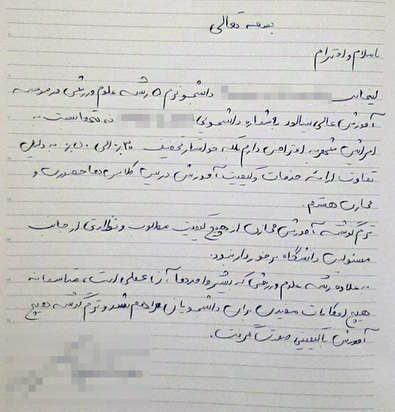 بسمه تعالی
باسلام و احترام
اینجانب دانشجو ترم ۵ رشته علوم ورزشی در موسسه
آموزش عالی بینالود با شماره دانشجویی نه تنها نسبت به
افزایش شهریه اعتراض دارم بلکه خواستار تخفیف ۳۰٪ الی ۵۰٪ به دلیل
تفاوت ارائه خدمات و کیفیت آموزش در بین کلاس‌ها حضوری و
مجازی هستم.
ترم گذشته آموزش مجازی از هیچ کیفیت مطلوب و نظارتی از جانب
مسئولین دانشگاه برخوردار نبود.
به علاوه رشته علوم ورزشی که بیشتر واحدها آن عملی است، متاسفانه
هیچ امکانات مفیدی برای دانشجویان فراهم نشد و ترم گذشته هیچ
آموزش با کیفیتی صورت نگرفت.